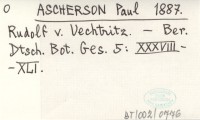 O ASCHERSON Paul 1887.
Rudolf v. Uechtritz. — Ber.
Dtsch. Bot. Ges. 5: XXXVIII-
-XLI.
BT/002/0446